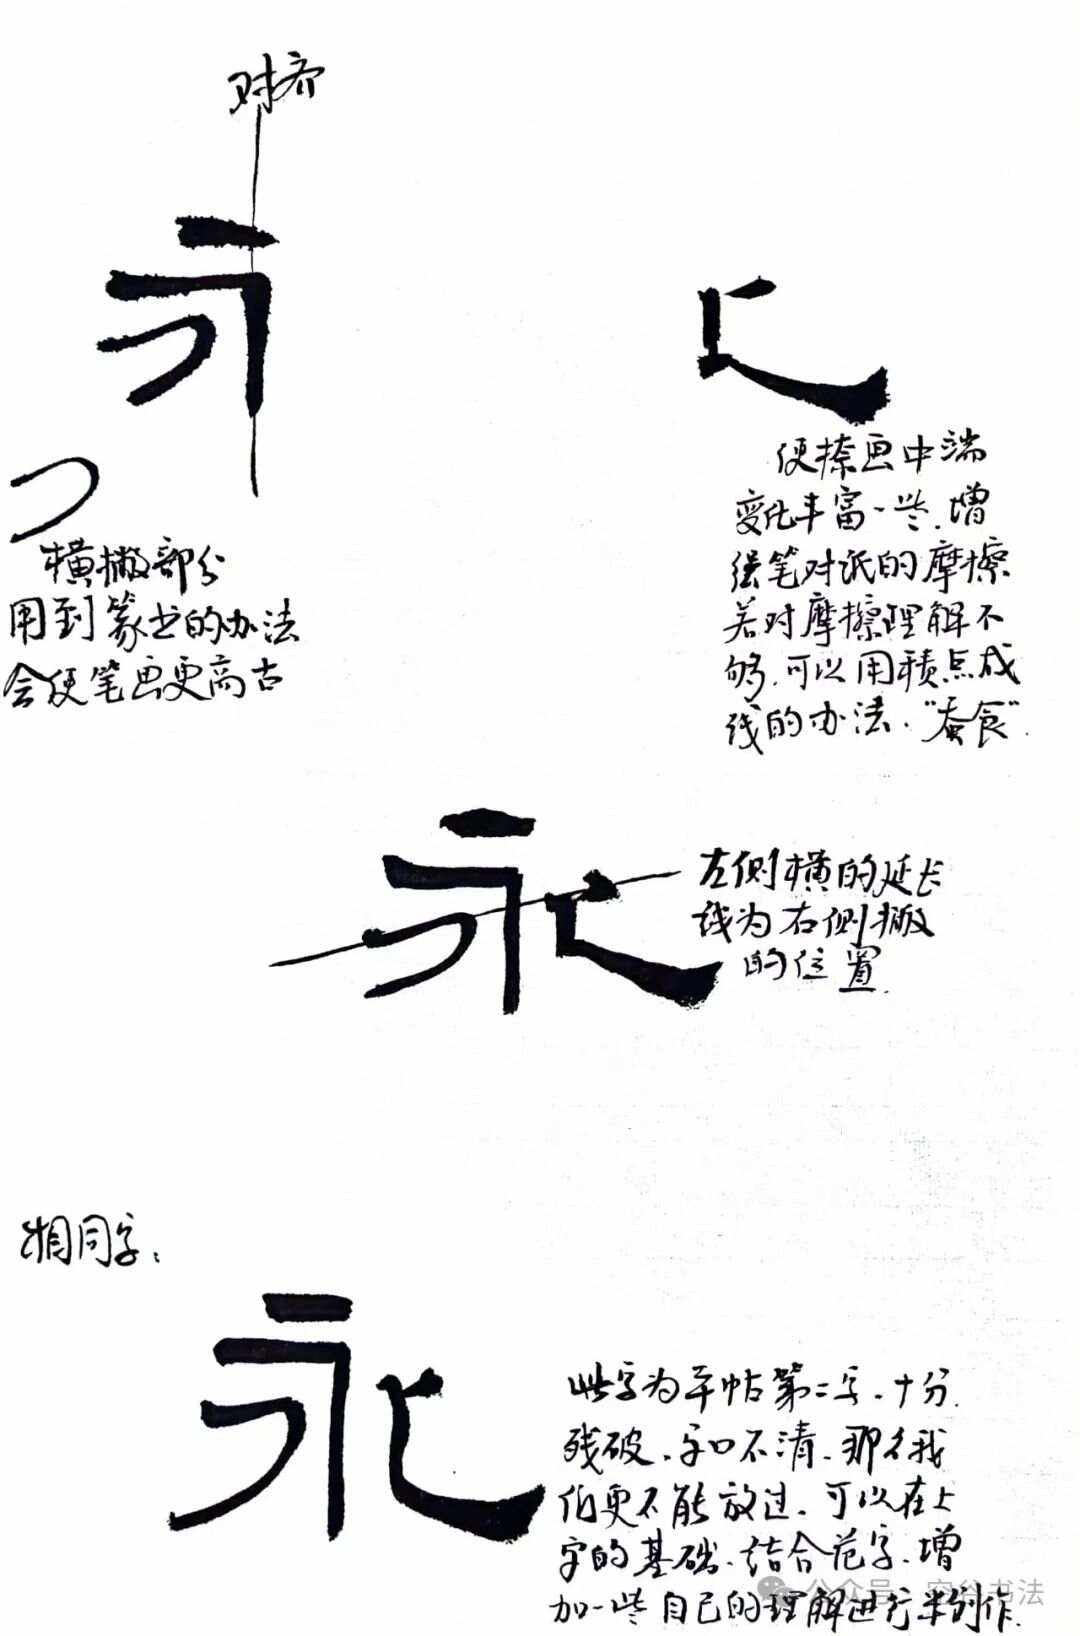 对齐
横撇部分
用到篆书的办法
会使笔画更高古
使捺画中端
变化丰富一些.增
强笔对纸的摩擦
若对摩擦理解不
够.可以用积点成
线的办法."蚕食".
永
左侧横的延长
线为右侧撇
的位置.
相同字:
永
此字为本帖第二字.十分
残破.字口不清.那么我
们更不能放过.可以在上
字的基础.结合范字.增
加一些自己的理解进行半创作.
公众号·空谷书法